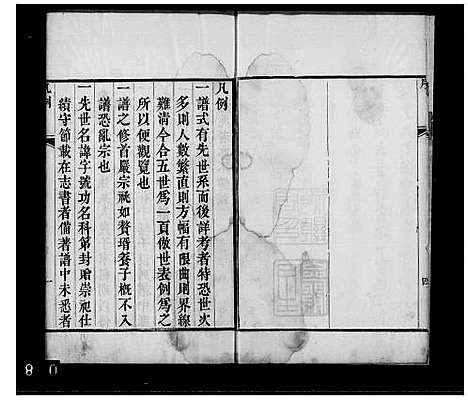 凡例
一譜式有先世系而後詳考者特恐世次
多則人數繁直則方幅有限曲則界線
難清今合五世為一頁倣世表例為之
所以便觀覽也
一譜之修首嚴宗祧如贅壻養子概不入
譜恐亂宗也
一先世名諱字號功名科第封贈崇祀仕
績守節載在志書者備著譜中未悉者
凡例
一
8 0